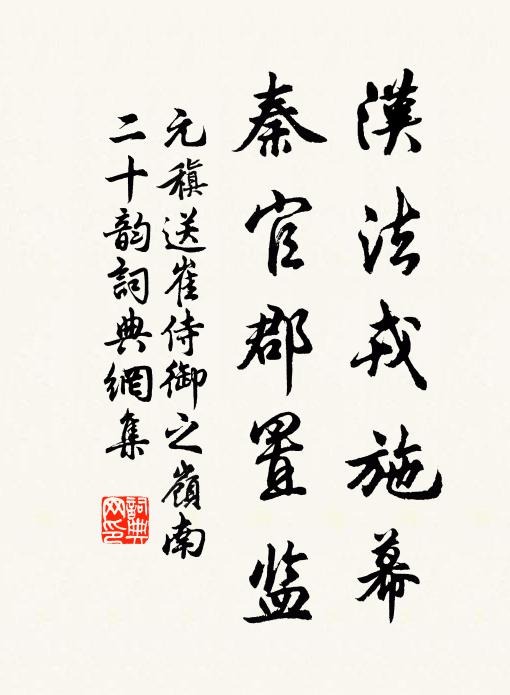 漢法戎施幕
秦官郡置监
元稹送崔侍御之嶺南
二十韵詞典網集
詞典
网印